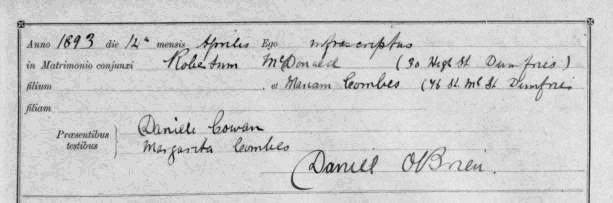 Anno 1893 die 12a mensis Aprilis Ego infrascriptus
in Matrimonio conjunxi Robertum McDonald (30 High St Dumfries)
filium et Mariam Combes (76 St. Ml St Dumfries
filiam
Præsentibus testibus } Daniele Cowan
Margarita Combes
Daniel O'Brien.